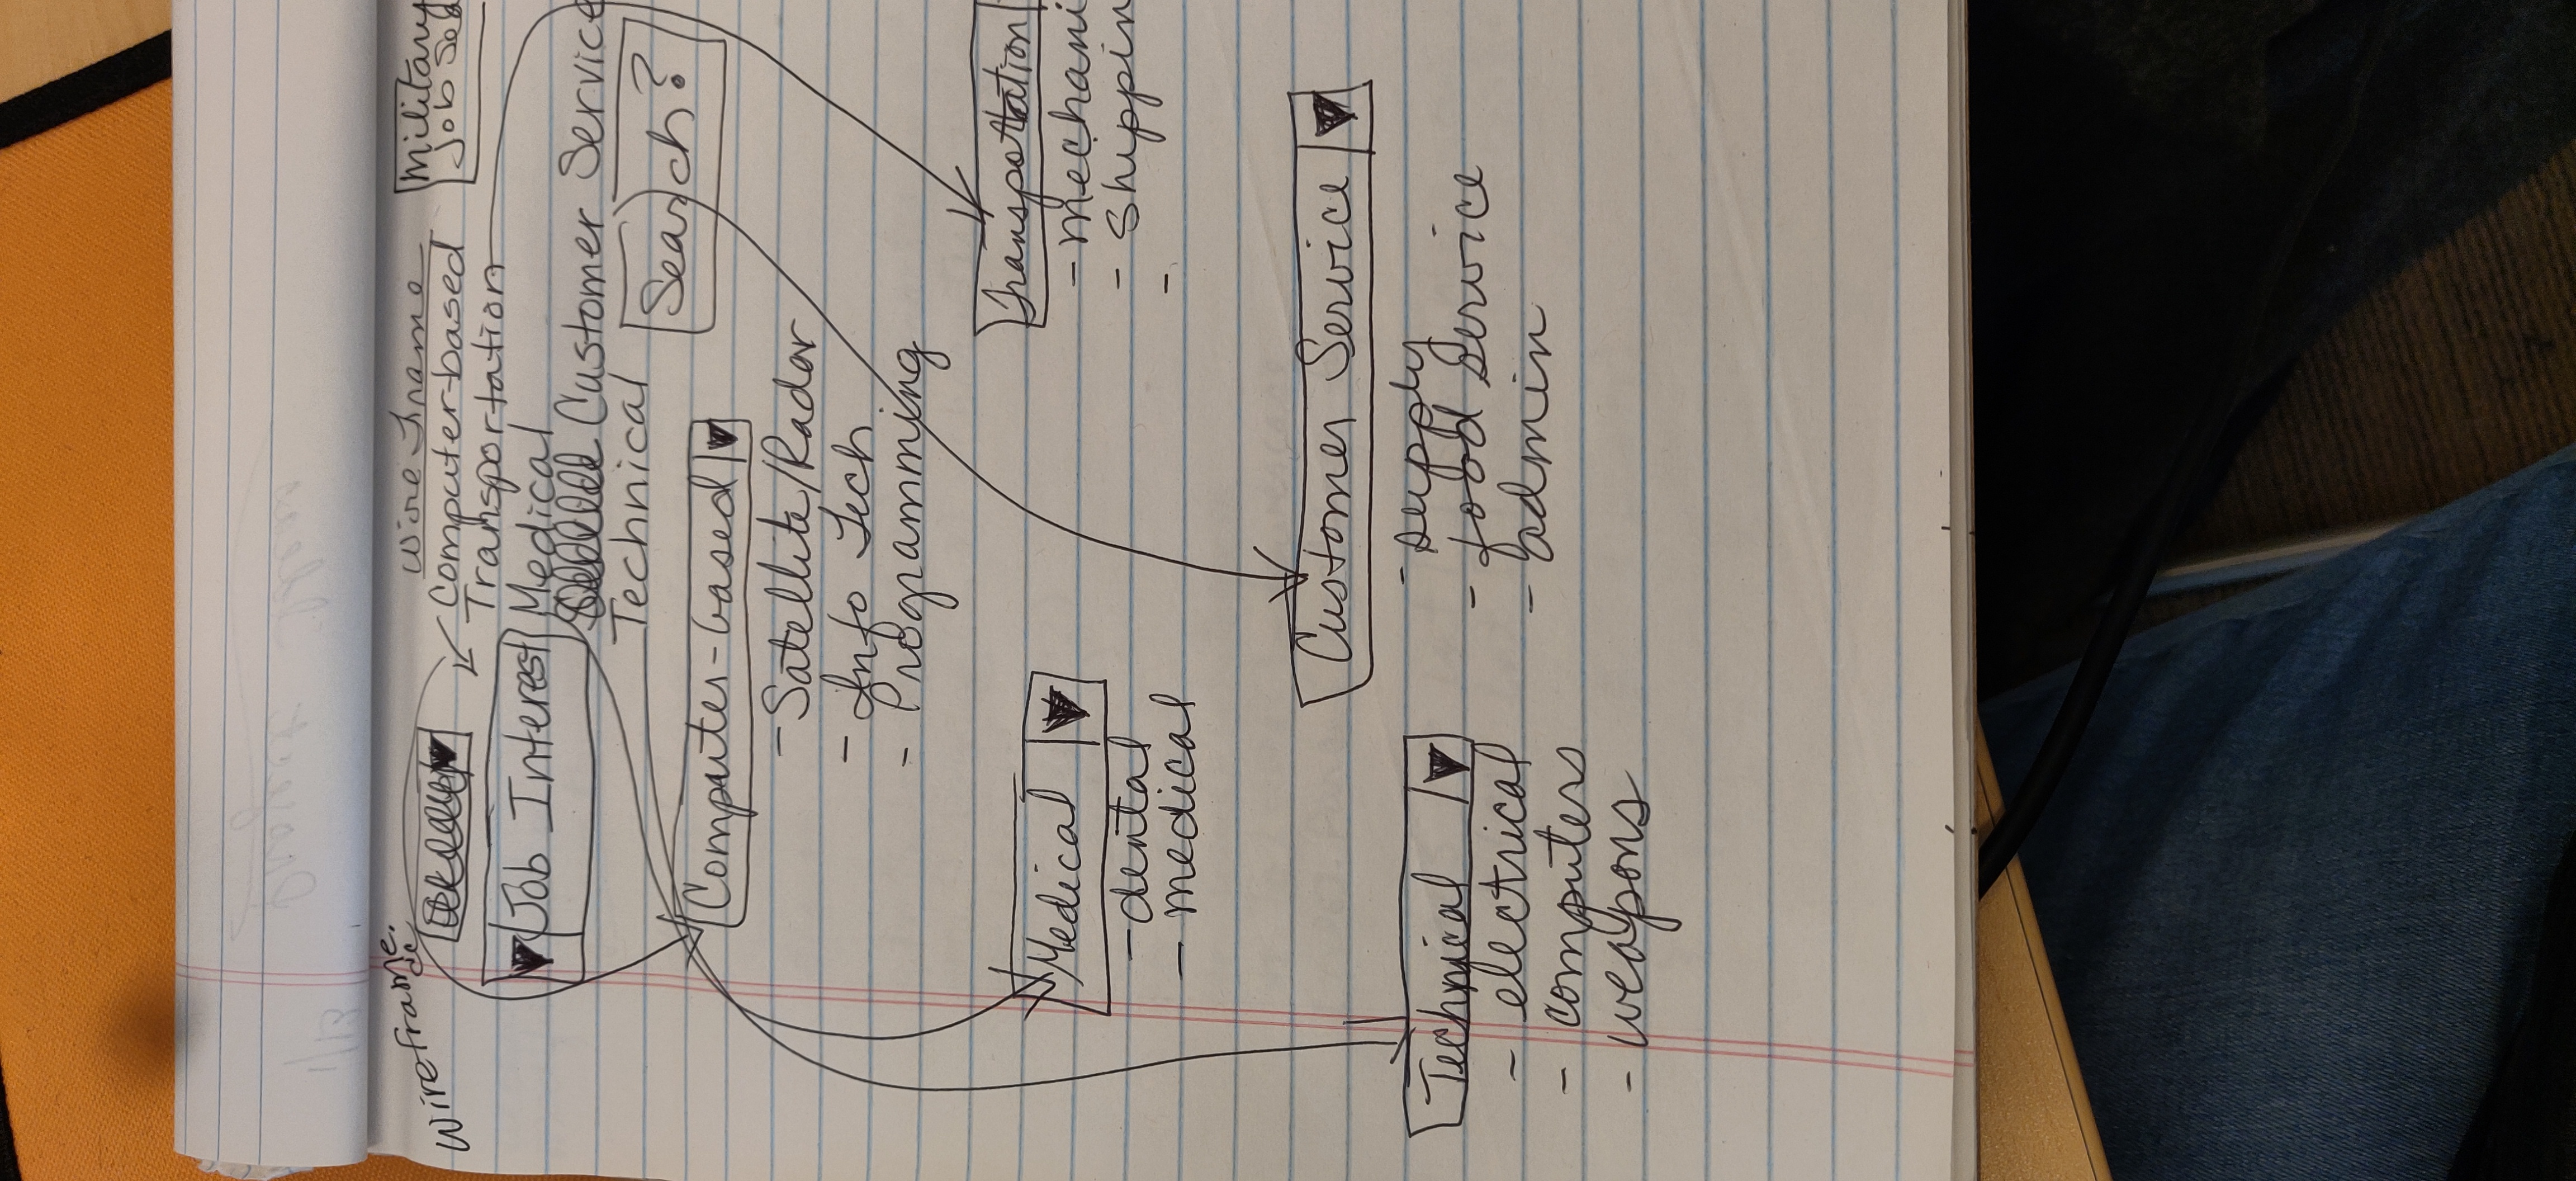 Wireframe.
Wire Frame
Military
Job Sea
Computer-based
Transportation
Job Interest
Medical
Customer Service
Technical
Search?
Computer-based
- Satellite/Radar
- Info Tech
- Programming
Transportation
- mechani
- Shippin
-
Medical
- dental
- medical
Customer Service
- supply
- food service
- admin
Technical
- electrical
- computers
- weapons